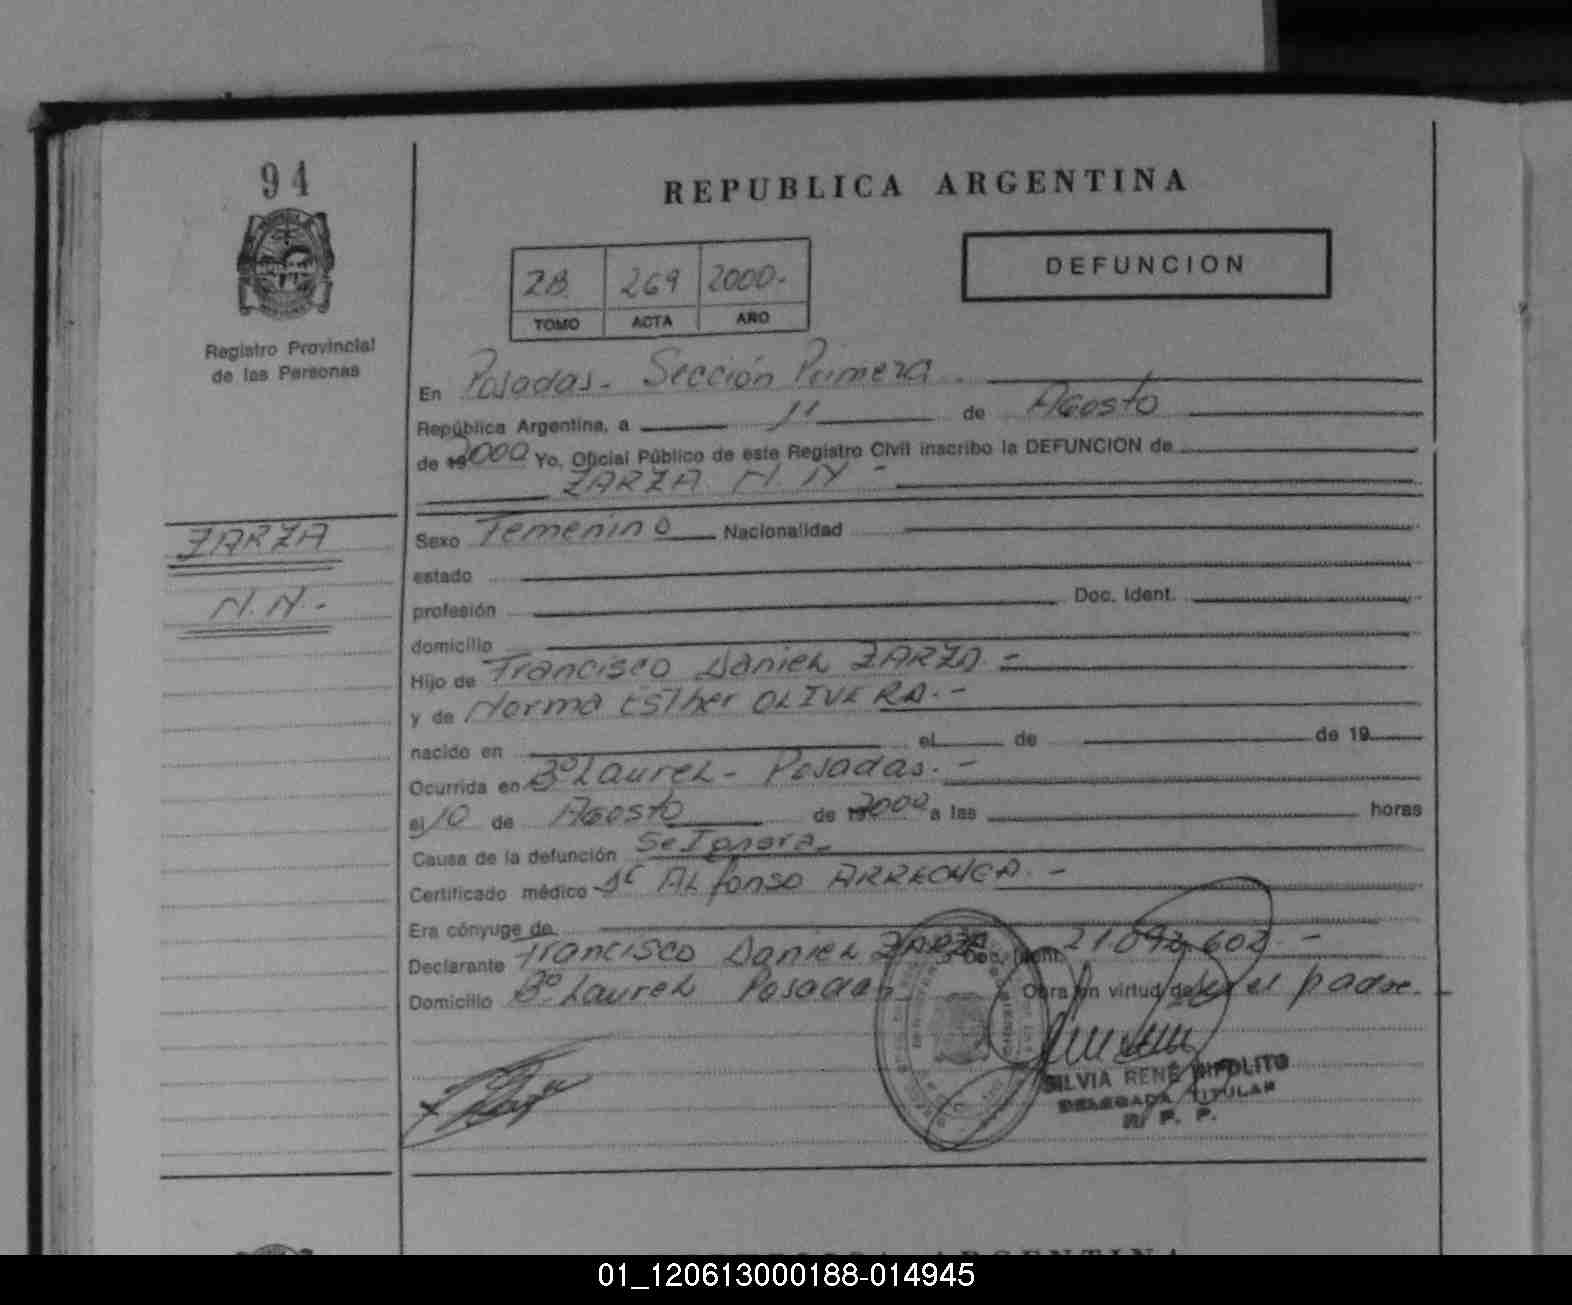 94
REPUBLICA ARGENTINA
DEFUNCION
2B 269 2000.-
TOMO ACTA AÑO
Registro Provincial
de las Personas
En Posadas. Sección Primera
República Argentina, a 11 de Agosto
de 19 2000 Yo, Oficial Público de este Registro Civil inscribo la DEFUNCION de
ZARZA N. N -
ZARZA
N.N.-
Sexo Femenino Nacionalidad
estado
profesión Doc. Ident.
domicilio
Hijo de Francisco Daniel ZARZA.-
y de Norma Esther OLIVERA.-
nacido en el de de 19
Ocurrida en Bº Laurel - Posadas.-
el 10 de Agosto de 19 2000 a las horas
Causa de la defunción Se Ignora.-
Certificado médico Dr Alfonso ARRECHEA.-
Era cónyuge de
Declarante Francisco Daniel ZARZA Doc. Ident. 21.092.602.-
Domicilio Bº Laurel Posadas Obra en virtud de ser el padre.-
SILVIA RENÉ HIPOLITO
DELEGADA TITULAR
R. P. P.
REPUBLICA ARGENTINA
01_120613000188-014945